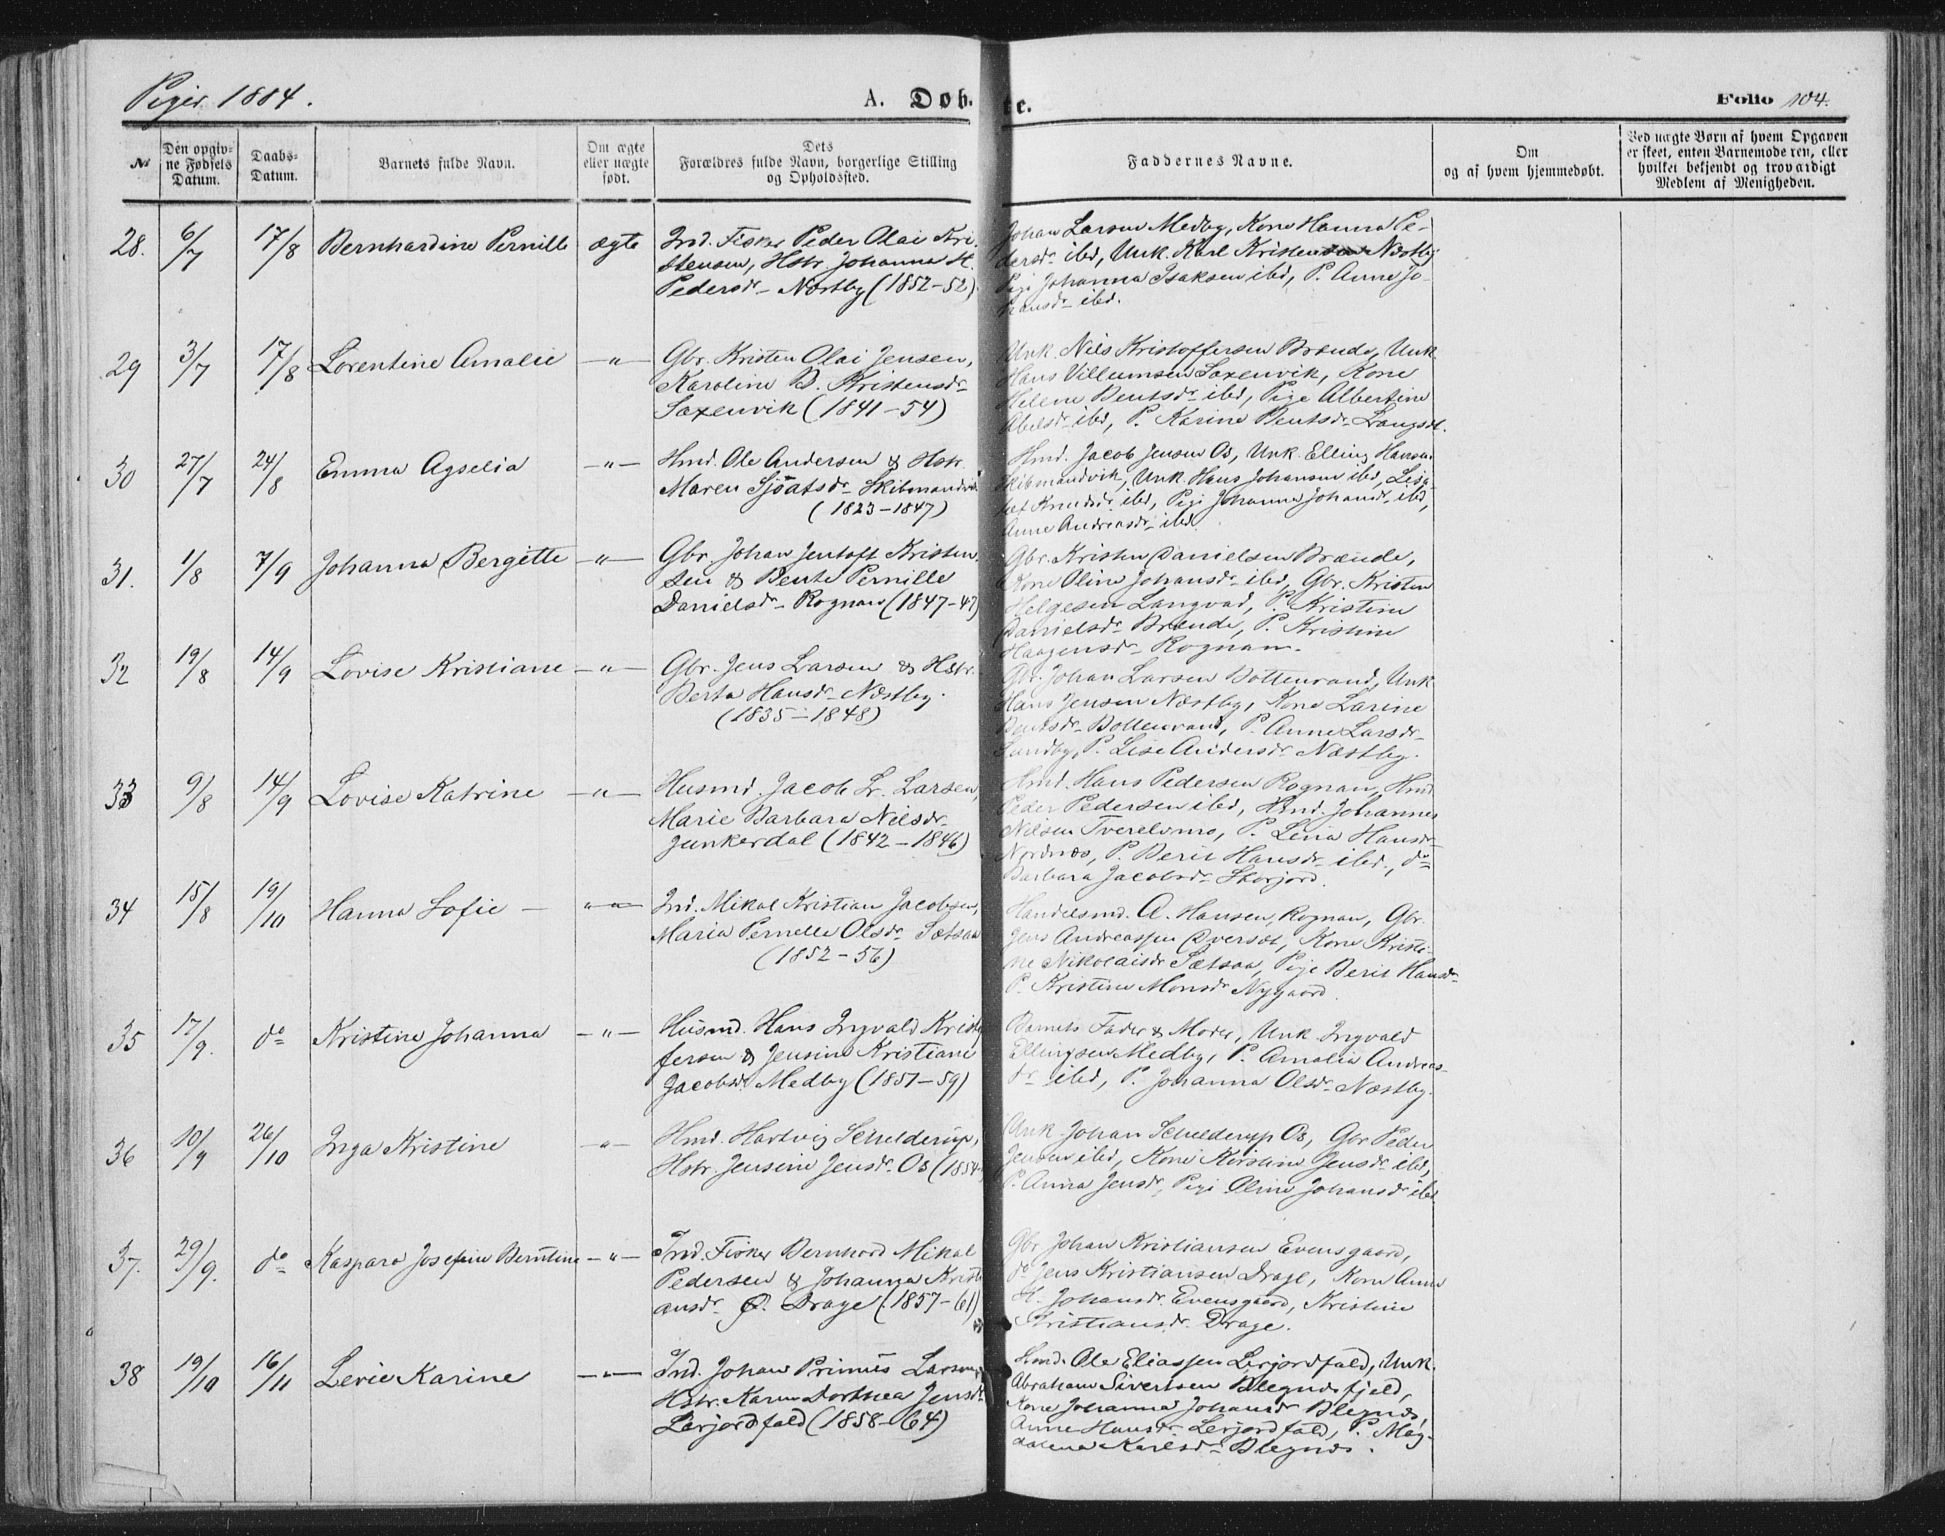 Piger 1884.
A. Døbte.
Folio 104.
№
Den opgivne Fødsels Datum.
Daabs-Datum.
Barnets fulde Navn.
Om ægte eller uægte født.
Dets Forældres fulde Navn, borgerlige Stilling og Opholdssted.
Faddernes Navne.
Om og af hvem hjemmedøbt.
Ved uægte Børn af hvem Opgaven er skeet, enten Barnemoderen, eller hvilket bekjendt og troværdigt Medlem af Menigheden.
28. 6/7 17/8 Bernhardine Pernille ægte
Ind. Fisker Peder Olai Kri-
stensen, Hstr. Johanna M.
Pedersdr Næstby (1852-52)
Johan Larsen Medby, Kone Hanna Pe-
dersdr ibd, Unk. Karl Kristensen Næstby
Pige Johanna Isaksen ibd, P. Anne Jo-
hansdr ibd.
29 3/7 17/8 Lorentine Amalie -"-
Gbr. Kristen Olai Jensen,
Karoline B. Kristensdr
Saxenvik (1841-54)
Unk. Nils Kristoffersen Brænde, Unk
Hans Villumsen Saxenvik, Kone
Helene Bentsdr ibd, Pige Albertine
Abelsdr ibd, P. Karine Bentsdr Langsdt.
30 27/7 24/8 Emma Agselia -"-
Hmd. Ole Andersen & Hstr.
Maren Sjøatsdr Skibmandvik
(1823-1847)
Hmd. Jacob Jensen Os, Unk. Elling Hansen
Skibmandvik, Unk. Hans Johansen ibd, Lisa-
bet Knudsdr ibd, Pige Johanna Johansdr ibd,
Anne Andreasdr ibd.
31. 1/8 7/9 Johanna Bergitte -"-
Gbr. Johan Jentoft Kristen-
sen & Bente Pernille
Danielsdr Rognan (1847-47)
Gbr. Kristen Danielsen Brænde,
Kone Oline Johansdr ibd, Gbr. Kristen
Helgesen Langvad, P. Kristine
Danielsdr Brænde, P. Kristine
Haagensdr Rognan.
32 19/8 14/9 Lovise Kristiane -"-
Gbr. Jens Larsen & Hstr.
Berta Hansdr Næstby.
(1835-1848)
Gbr. Johan Larsen Bottenvand, Unk
Hans Jensen Næstby, Kone Larine
Bentsdr Bottenvand, P. Anne Larsdr
Sundby, P. Lise Andersdr Næstby.
33 9/8 14/9 Lovise Katrine -"-
Husmd. Jacob Lr. Larsen,
Marie Barbara Nilsdr
Junkerdal (1842-1846)
Hmd. Hans Pedersen Rognan, Hmd
Peder Pedersen ibd, Hmd. Johannes
Nilsen Tverelvmo, P. Lina Hansdr
Nordnæs, P. Berit Hansdr ibd, do
Barbara Jacobsdr Storjord.
34 15/8 19/10 Hanna Sofie - -"-
Ind. Mikal Kristian Jacobsen,
Maria Pernelle Olsdr Sætsaa
(1852-56)
Handelsmd. A. Hansen, Rognan, Gbr.
Jens Andreassen Dverset, Kone Kristi-
ne Nikolaisdr Sætsaa, Pige Berit Hansdr
P. Kristine Monsdr Nygaard.
35 17/9. do Kristine Johanna -"-
Husmd. Hans Ingvald Kristof-
fersen & Jensine Kristiane
Jacobsdr Medby (1851-59)
Barnets Fader & Moder, Unk Ingvald
Ellingsen Medby, P. Amalia Andreas-
dr ibd, P. Johanna Olsdr Næstby.
36 10/9 26/10 Inga Kristine -"-
Hmd. Hartvig Schelderup,
Hstr. Jensine Jensdr Os (1854
Unk. Johan Schelderup Os, Gbr Peder
Jensen ibd, Kone Kirstine Jensdr ibd,
P. Anna Jensdr, Pige Oline Johansdr ibd
37. 29/9. do Kaspara Josefine Berntine -"-
Ind. Fisker Bernhard Mikal
Pedersen & Johanna Kristi-
ansdr Ø. Drage (1857-61)
Gbr Johan Kristiansen Evensgaard,
do Jens Kristiansen Drage, Kone Anne
M. Johansdr Evensgaard, Kristine
Kristiansdr Drage.
38 19/10 16/11 Levie Karine -"-
Ind. Johan Primus Larsen,
Hstr. Karen Dorthea Jensdr
Lerjordfald (1858-64)
Hmd. Ole Eliassen Lerjordfald, Unk.
Abraham Sivertsen Blegnesfjeld,
Kone Johanna Johansdr Blegnes,
Anne Hansdr Lerjordfald, P. Mag-
dalena Karlsdr Blegnes.